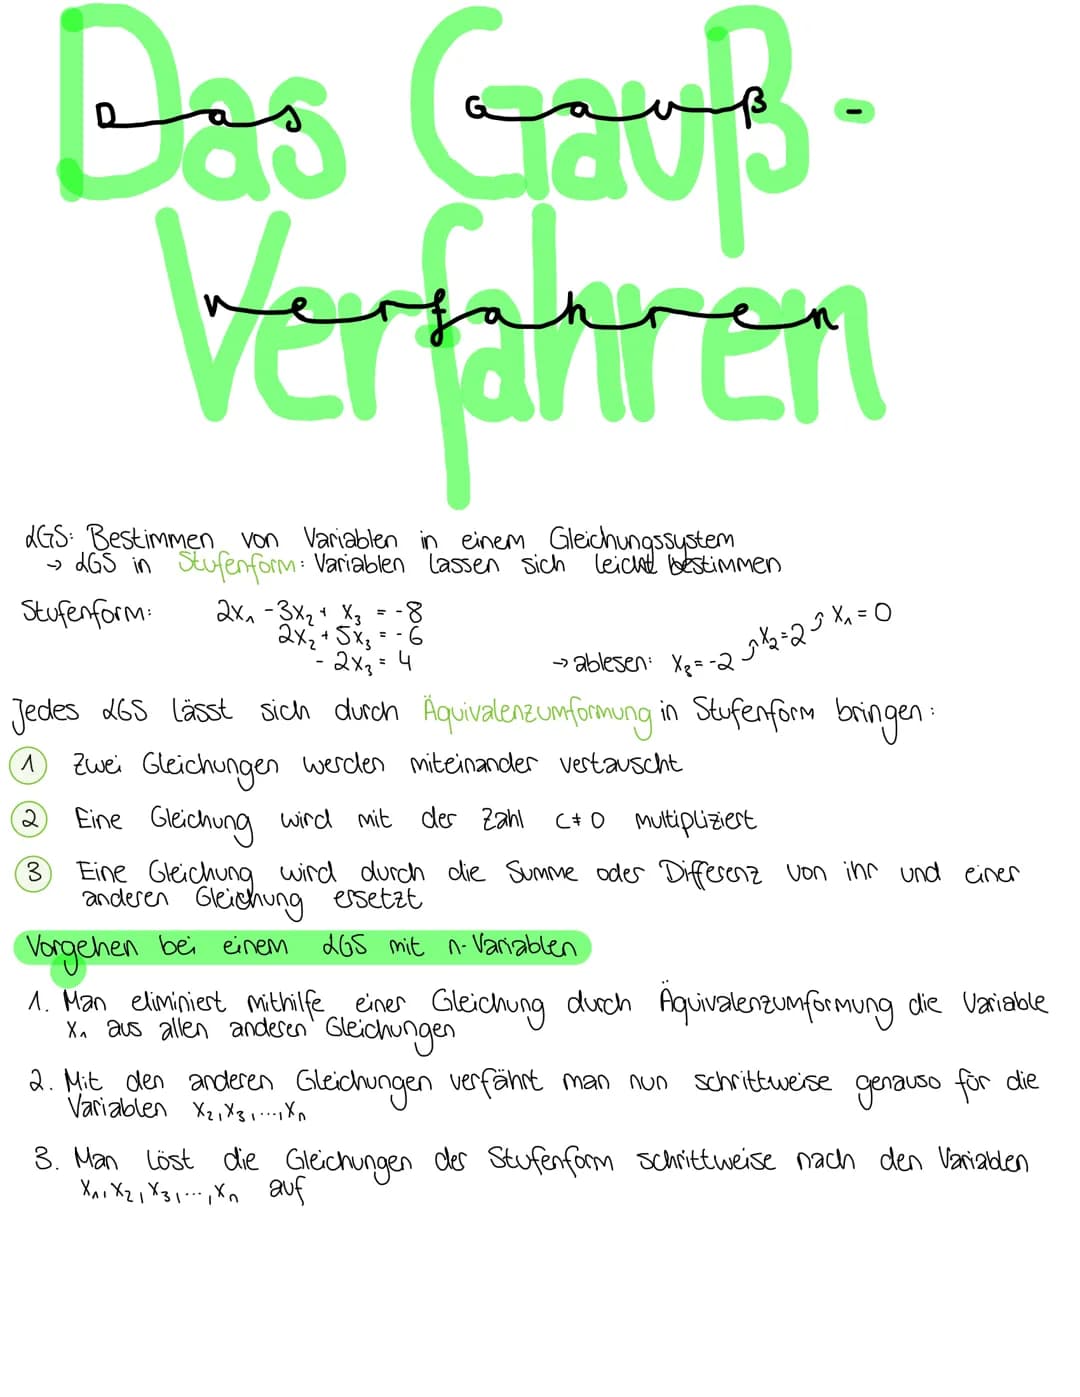 Das Gauß-
verfahren
LGS: Bestimmen von Variablen in einem Gleichungssystem
→ LGS in Stufenform: Variablen lassen sich leicht bestimmen
Stufenform: 2x₁ - 3x₂ + x₃ = -8
2x₂ + 5x₃ = -6
- 2x₃ = 4 → ablesen: x₃ = -2 ⤴ x₂ = 2 ⤴ x₁ = 0
Jedes LGS lässt sich durch Äquivalenzumformung in Stufenform bringen:
1 Zwei Gleichungen werden miteinander vertauscht
2 Eine Gleichung wird mit der Zahl c ≠ 0 multipliziert
3 Eine Gleichung wird durch die Summe oder Differenz von ihr und einer
anderen Gleichung ersetzt
Vorgehen bei einem LGS mit n-Variablen
1. Man eliminiert mithilfe einer Gleichung durch Äquivalenzumformung die Variable
x₁ aus allen anderen Gleichungen
2. Mit den anderen Gleichungen verfährt man nun schrittweise genauso für die
Variablen x₂, x₃, ..., xₙ
3. Man löst die Gleichungen der Stufenform schrittweise nach den Variablen
x₁, x₂, x₃, ..., xₙ auf